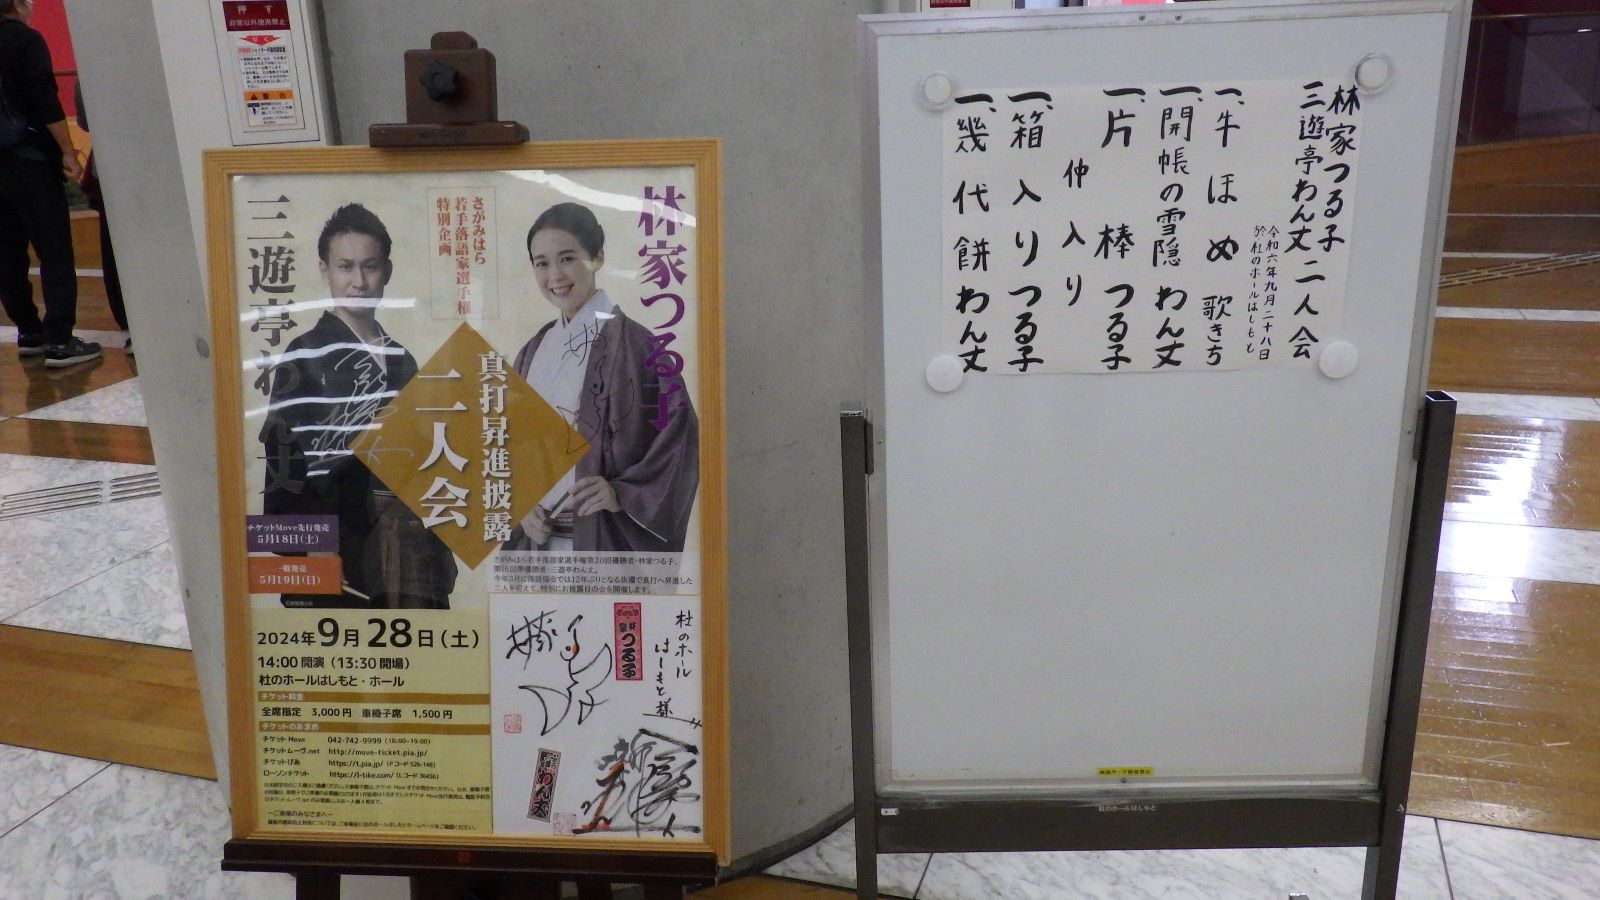 押す
非常以外使用禁止
三遊亭わん丈
さがみはら
若手落語家選手権
特別企画
林家つる子
真打昇進披露
二人会
チケットMove先行発売
5月18日(土)
一般発売
5月19日(日)
さがみはら若手落語家選手権第20回優勝者・林家つる子、
第16回準優勝者・三遊亭わん丈。
今年3月に落語協会では12年ぶりとなる抜擢で真打へ昇進した
二人を迎えて、特別にお披露目の会を開催します。
2024年9月28日(土)
14:00開演(13:30開場)
杜のホールはしもと・ホール
チケット料金
全席指定 3,000円 車椅子席 1,500円
チケットのお求め
チケットMove 042-742-9999(10:00~19:00)
チケットムーヴ.net http://move-ticket.pia.jp/
チケットぴあ https://t.pia.jp/(Pコード526-146)
ローソンチケット https://l-tike.com/(Lコード36456)
―ご来場のみなさまへ―
杜のホール
はしもと様
林家
つる子
林家つる子
三遊亭わん丈 二人会
令和六年九月二十八日
於 杜のホールはしもと
一、牛ほめ 歌きち
一、開帳の雪隠 わん丈
一、片棒 つる子
仲入り
一、箱入り つる子
一、幾代餅 わん丈
杜のホールはしもと